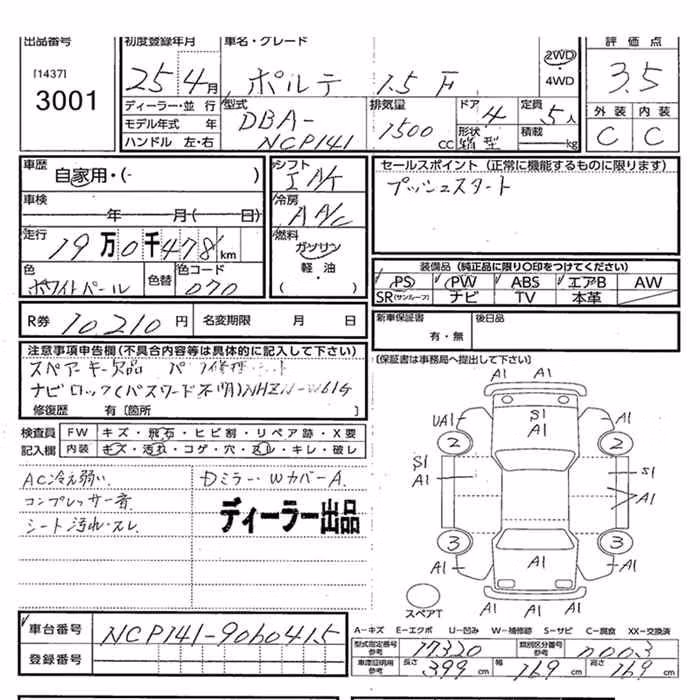 出品番号
[1437]
3001
初度登録年月 車名・グレード
25 4月 ポルテ 1.5 F
2WD
・
4WD
評価点
3.5
外装 内装
C C
ディーラー・並行
モデル年式 年
ハンドル 左・右
型式
DBA-
NCP141
排気量
1500 CC
ドア
4
形状
箱型
定員
5人
積載
kg
車歴
自家用・( )
車検
年 月( 日)
走行
19万0千478km
色
ホワイトパール
色替
色コード
070
シフト
I A/T
冷房
A A/C
燃料
ガソリン
・
軽・油
( )
セールスポイント (正常に機能するものに限ります)
プッシュスタート
装備品 (純正品に限り〇印をつけてください)
PS PW ABS エアB AW
SR(サンルーフ) ナビ TV 本革
R券 10210円 名変期限 月 日
新車保証書 後日品
有・無
(保証書は事務局へ提出して下さい)
注意事項申告欄(不具合内容等は具体的に記入して下さい)
スペアキー欠品
ナビロック(パスワード不明)NHZN-W61G
修復歴 有〔箇所 〕
検査員 FW キズ・飛石・ヒビ割・リペア跡・X要
記入欄 内装 キズ・汚れ・コゲ・穴・スレ・キレ・破レ
AC冷え弱い. Dミラー・WカバーA.
コンプレッサー音
シート汚れ・スレ
ディーラー出品
A1
A1 A1
S1
A1
UA1 A1
2 2
S1 S1
A1 A1
3 3
A1 A1 A1
A1 A1
A1
スペアT
車台番号 NCP141-9060415
登録番号
A-キズ E-エクボ U-凹み W-補修跡 S-サビ C-腐食 XX-交換済
型式指定番号 参考 17320 類別区分番号 参考 0003
車庫証明用 参考 長さ 399cm 幅 169cm 高さ 169cm